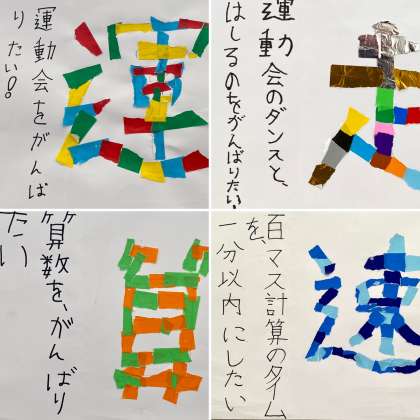 運
運動会をがんば
りたい!!
走
運動会のダンスと、
はしるのをがんばりたい。
算
算数を、がんばり
たい
速
百マス計算のタイム
を、
一分以内にしたい